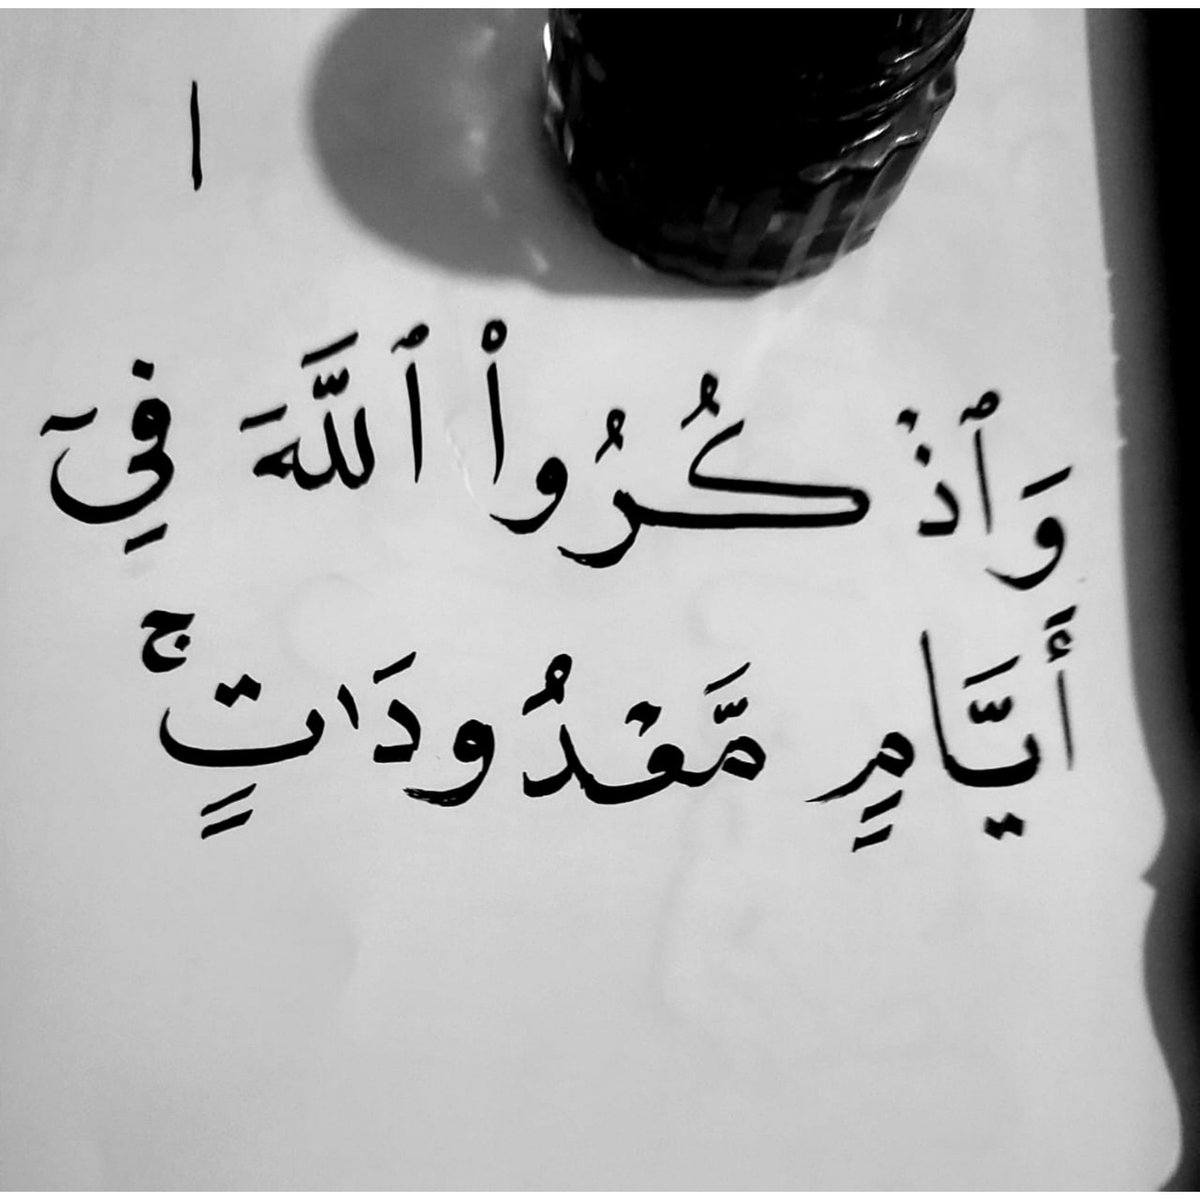 ا
وَٱذْكُرُوا۟ ٱللَّهَ فِيٓ
أَيَّامٍ مَّعْدُودَٰتٍۚ